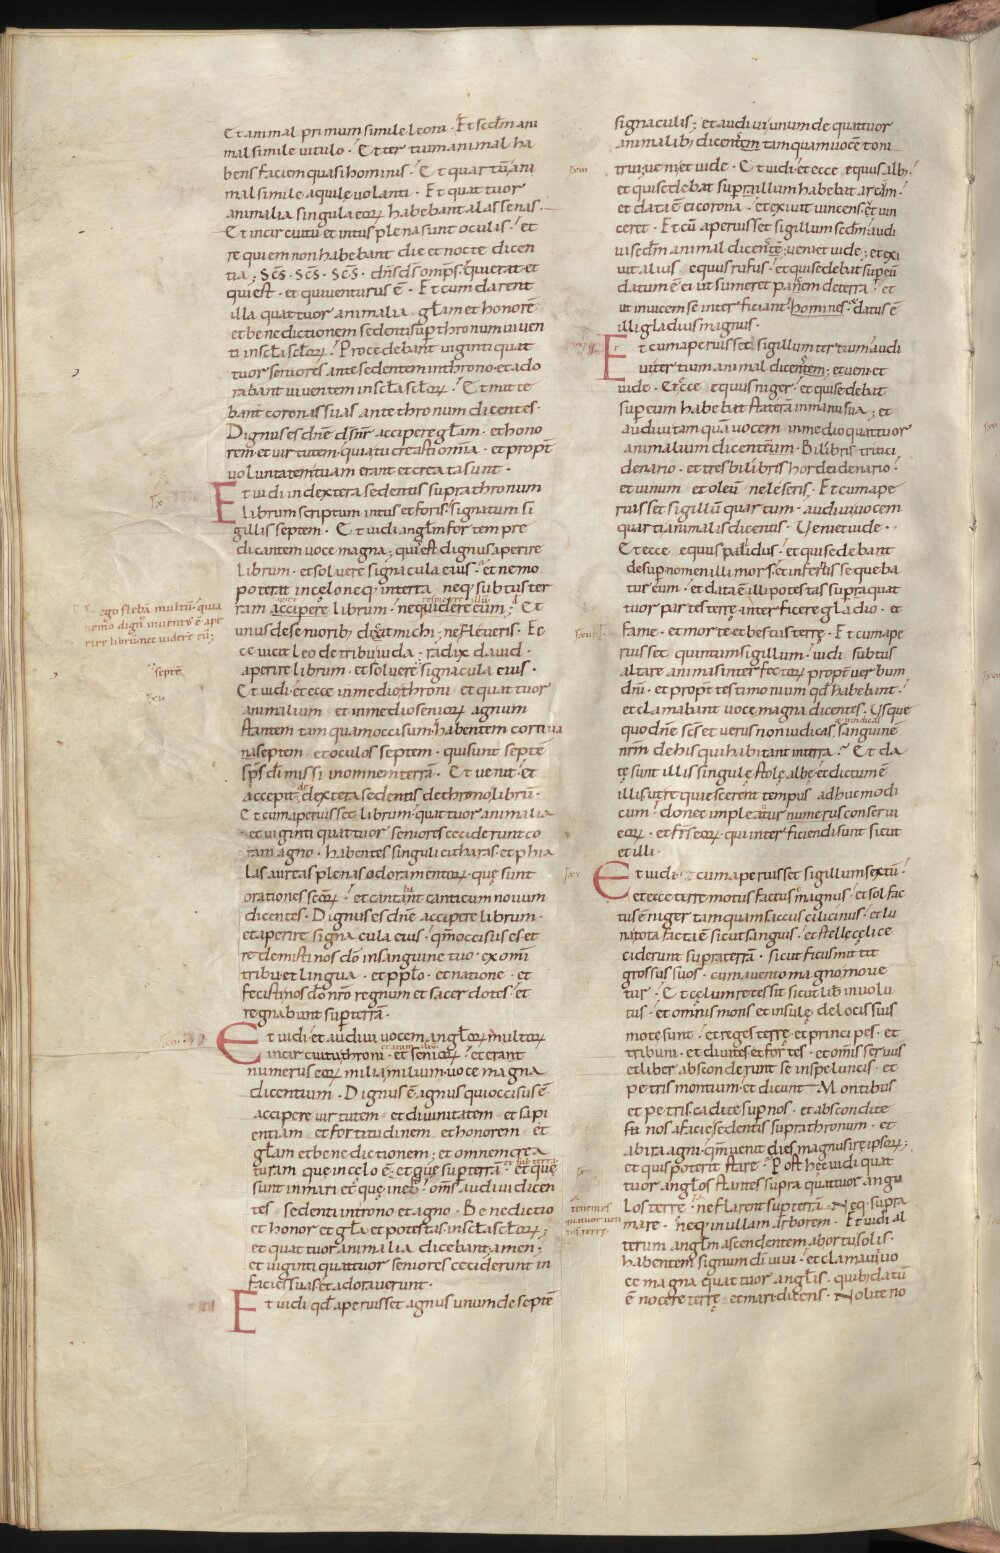 Et animal primum simile leoni · Et secdm ani
mal simile vitulo · Et tertium animal ha
bens faciem quasi hominis · Et quartū ani
mal simile aquile volanti · Et quattuor
animalia singula eoꝝ habebant alas senas ·
Et in circuitu et intus plena sunt oculis · et
requiem non habebant die et nocte dicen
tia ; Scs · Scs · Scs · dns ds omps · qui erat et
qui est · et qui venturus ē · Et cum darent
illa quattuor animalia glam et honorē
et benedictionem sedenti sup thronum viven
ti in scla scloꝝ · Procedebant viginti quat
tuor seniores ante sedentem in throno et ado
rabant viventem in scla scloꝝ · Et mitte
bant coronas suas ante thronum dicentes ·
Dignus es dne ds nr accipere glam · et hono
rem et virtutem · quia tu creasti omia · et propt
voluntatem tuam erant et creata sunt ·
Et vidi in dextera sedentis supra thronum
librum scriptum intus et foris · signatum si
gillis septem · Et vidi anglm fortem pre
dicantem voce magna ; quis est dignus aperire
librum · et solvere signacula eius · et nemo
poterat in celo neq in terra neq subtus ter
ram accipere librum · neq videre eum ; Et
respicere illū
Ego flebā multū · quia
nemo dign' invent' ē ape
rire librū nec videre eū ;
unus de seniorib; dixit michi ; ne fleveris · Ec
ce vicit leo de tribu iuda · radix david ·
aperire librum · et solvere signacula eius ·
septē
Et vidi et ecce in medio throni et quattuor
animalium et in medio senioꝝ agnum
stantem tamquam occisum · habentem cornua
septem et oculos septem · qui sunt septē
sps di missi in omnem terrā · Et venit · et
accepit de dextera sedentis de throno librū ·
Et cum aperuisset librum · quattuor animalia
et viginti quattuor seniores ceciderunt co
ram agno · habentes singuli citharas · et phia
las aureas plenas odoramentoꝝ · quę sunt
orationes scoꝝ · et cantant canticum novum
dicentes · Dignus es dne accipere librum ·
et aperire signacula eius · qm occisus es et
redemisti nos do in sanguine tuo · ex omi
tribu et lingua · et pplo · et natione · et
fecisti nos do nro regnum et sacerdotes · et
regnabunt sup terram ·
Et vidi · et audivi vocem angloꝝ multoꝝ
in circuitu throni · et senioꝝ · et erant
numerus eoꝝ milia milium · voce magna
dicentium · Dignus ē agnus qui occisus ē
accipere virtutem et divinitatem et sapi
entiam et fortitudinem et honorem et
glam et benedictionem ; et omnem crea
turam que in celo ē · et quę sup terrā · et quę
et sub terra
sunt in mari et quę in eo · oms audivi dicen
tes sedenti in trono et agno · Benedictio
et honor et gla et potestas · in scla scloꝝ ;
et quattuor animalia dicebant amen ;
et viginti quattuor seniores ceciderunt in
facies suas · et adoraverunt ·
Et vidi qd aperuisset agnus unum de septē
signaculis ; et audivi unum de quattuor
animalib; dicentem tamquam vocē toni
trui · veni et vide · Et vidi · et ecce equus alb' ·
et qui sedebat super illum habebat arcum ·
et data ē ei corona · et exivit vincens · et vin
ceret · Et cū aperuisset sigillum secdm · audi
vi secdm animal dicentē ; veni et vide ; et exi
vit alius equus rufus · et qui sedebat sup eū
datum ē ei ut sumeret pacem de terra · et
ut invicem se interficiant homines · datus ē
illi gladius magnus ·
Et cum aperuisset sigillum tertium · audi
vi tertium animal dicentem ; veni et
vide · Et ecce equus niger · et qui sedebat
sup eum habebat staterā in manu sua ; et
audivi tamquā vocem in medio quattuor
animalium dicentium · Bilibris tritici
denario · et tres bilibris hordei denario ·
et vinum et oleū ne leseris · Et cum ape
ruisset sigillū quartum · audivi vocem
quarti animalis dicentis · Veni et vide ·
Et ecce equus palidus · et qui sedebant
desup nomen illi mors · et infernus seqeba
tur eum · et data ē illi potestas supra quat
tuor partes terrę · interficere gladio · et
fame · et morte et bestiis terrę · Et cum ape
ruisset quintum sigillum · vidi subtus
altare animas interfectoꝝ propt verbum
dni · et propt testimonium qd habebant ·
et clamabant voce magna dicentes · Usque
quo dne scs et verus non iudicas sanguinē
nrm de his qui habitant in terra · Et da
tę sunt illis singulę stolę albę et dictum ē
illis ut requiescerent tempus adhuc modi
cum · donec impleatur numerus conservi
eoꝝ · et frs eoꝝ · qui interficiendi sunt sicut
et illi ·
Et vidi · cum aperuisset sigillum sextū ·
et ecce terremotus factus magnus · et sol fac
tus ē niger tamquam saccus cilicinus · et lu
na tota facta ē sicut sanguis · et stelle celi ce
ciderunt supra terrā · sicut ficus mittit
grossus suos · cum a vento magno move
tur · Et celum recessit sicut lib involu
tus · et omnis mons et insulę de locis suis
mote sunt · et reges terrę · et principes · et
tribuni · et divites · et fortes · et omis servus
et liber absconderunt se in speluncis · et
petris montium · et dicunt Montibus
et petris cadite sup nos · et abscondite
nos a facie sedentis supra thronum · et
ab ira agni · qm venit dies magnus irę ipsoꝝ ;
et quis poterit stare · Post hęc vidi quat
tuor anglos stantes supra quattuor angu
los terrę · ne flarent sup terrā · Neq supra
tenentes
quattuor ven
tos terrę ·
mare · neq in ullam arborem · Et vidi al
terum anglm ascendentem ab ortu solis ·
habentem signum di vivi · et clamavit vo
ce magna quattuor anglis · quib; datū
ē nocere terrę et mari · dicens · Nolite no